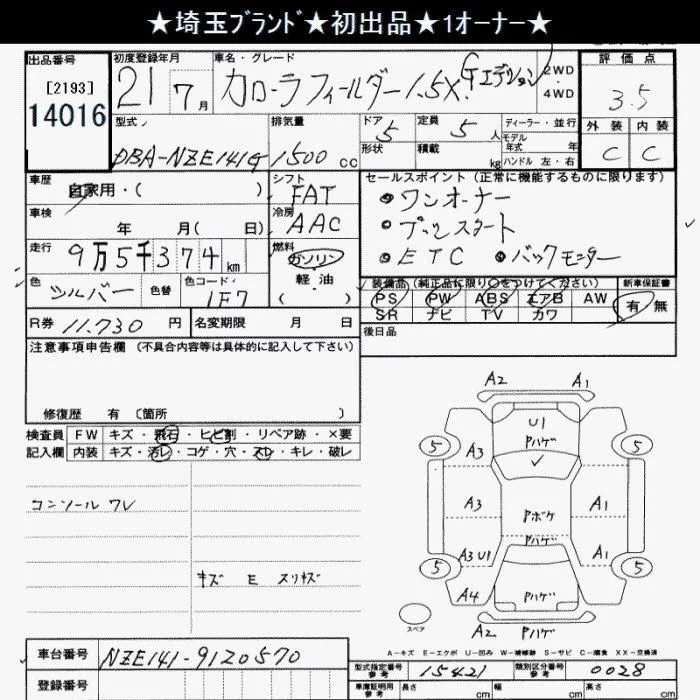 ★埼玉ﾌﾞﾗﾝﾄﾞ★初出品★1オーナー★
出品番号
[2193]
14016
初度登録年月
21 7月
車名・グレード
カローラフィールダー 1.5X Gエディション
2WD
4WD
評価点
3.5
外装 内装
C C
型式
DBA-NZE141G
排気量
1500cc
ドア 5
形状
定員 5人
積載 kg
ディーラー・並行
モデル
年式 年
ハンドル 左・右
車歴
自家用・( )
車検
年 月( 日)
走行
9万5千374km
色
シルバー
色替
色コード
1F7
シフト
FAT
冷房
AAC
燃料
ガソリン
軽・油
( )
セールスポイント(正常に機能するものに限ります)
ワンオーナー
プッシュスタート
ETC バックモニター
装備品(純正品に限り○をつけてください)
PS PW ABS エアB AW
SR ナビ TV カワ
新車保証書
有 無
R券 11,730 円
名変期限 月 日
後日品
注意事項申告欄(不具合内容等は具体的に記入して下さい)
修復歴 有 〔箇所 〕
検査員 FW キズ・飛石・ヒビ割・リペア跡・×要
記入欄 内装 キズ・汚レ・コゲ・穴・スレ・キレ・破レ
コンソール ワレ
キズ E スリキズ
A2 A1
U1
Pハゲ
5 5
A3
A3 A1
Pボケ
A3 U1 Pハゲ A1
5 5
A4 Pハゲ
スペア
A2 Pハゲ
A-キズ E-エクボ U-凹み W-補修跡 S-サビ C-腐食 XX-交換済
車台番号 NZE141-9120570
登録番号
型式指定番号
参考
15421
類別区分番号
参考
0028
車庫証明用
参考
長さ cm 幅 cm 高さ cm